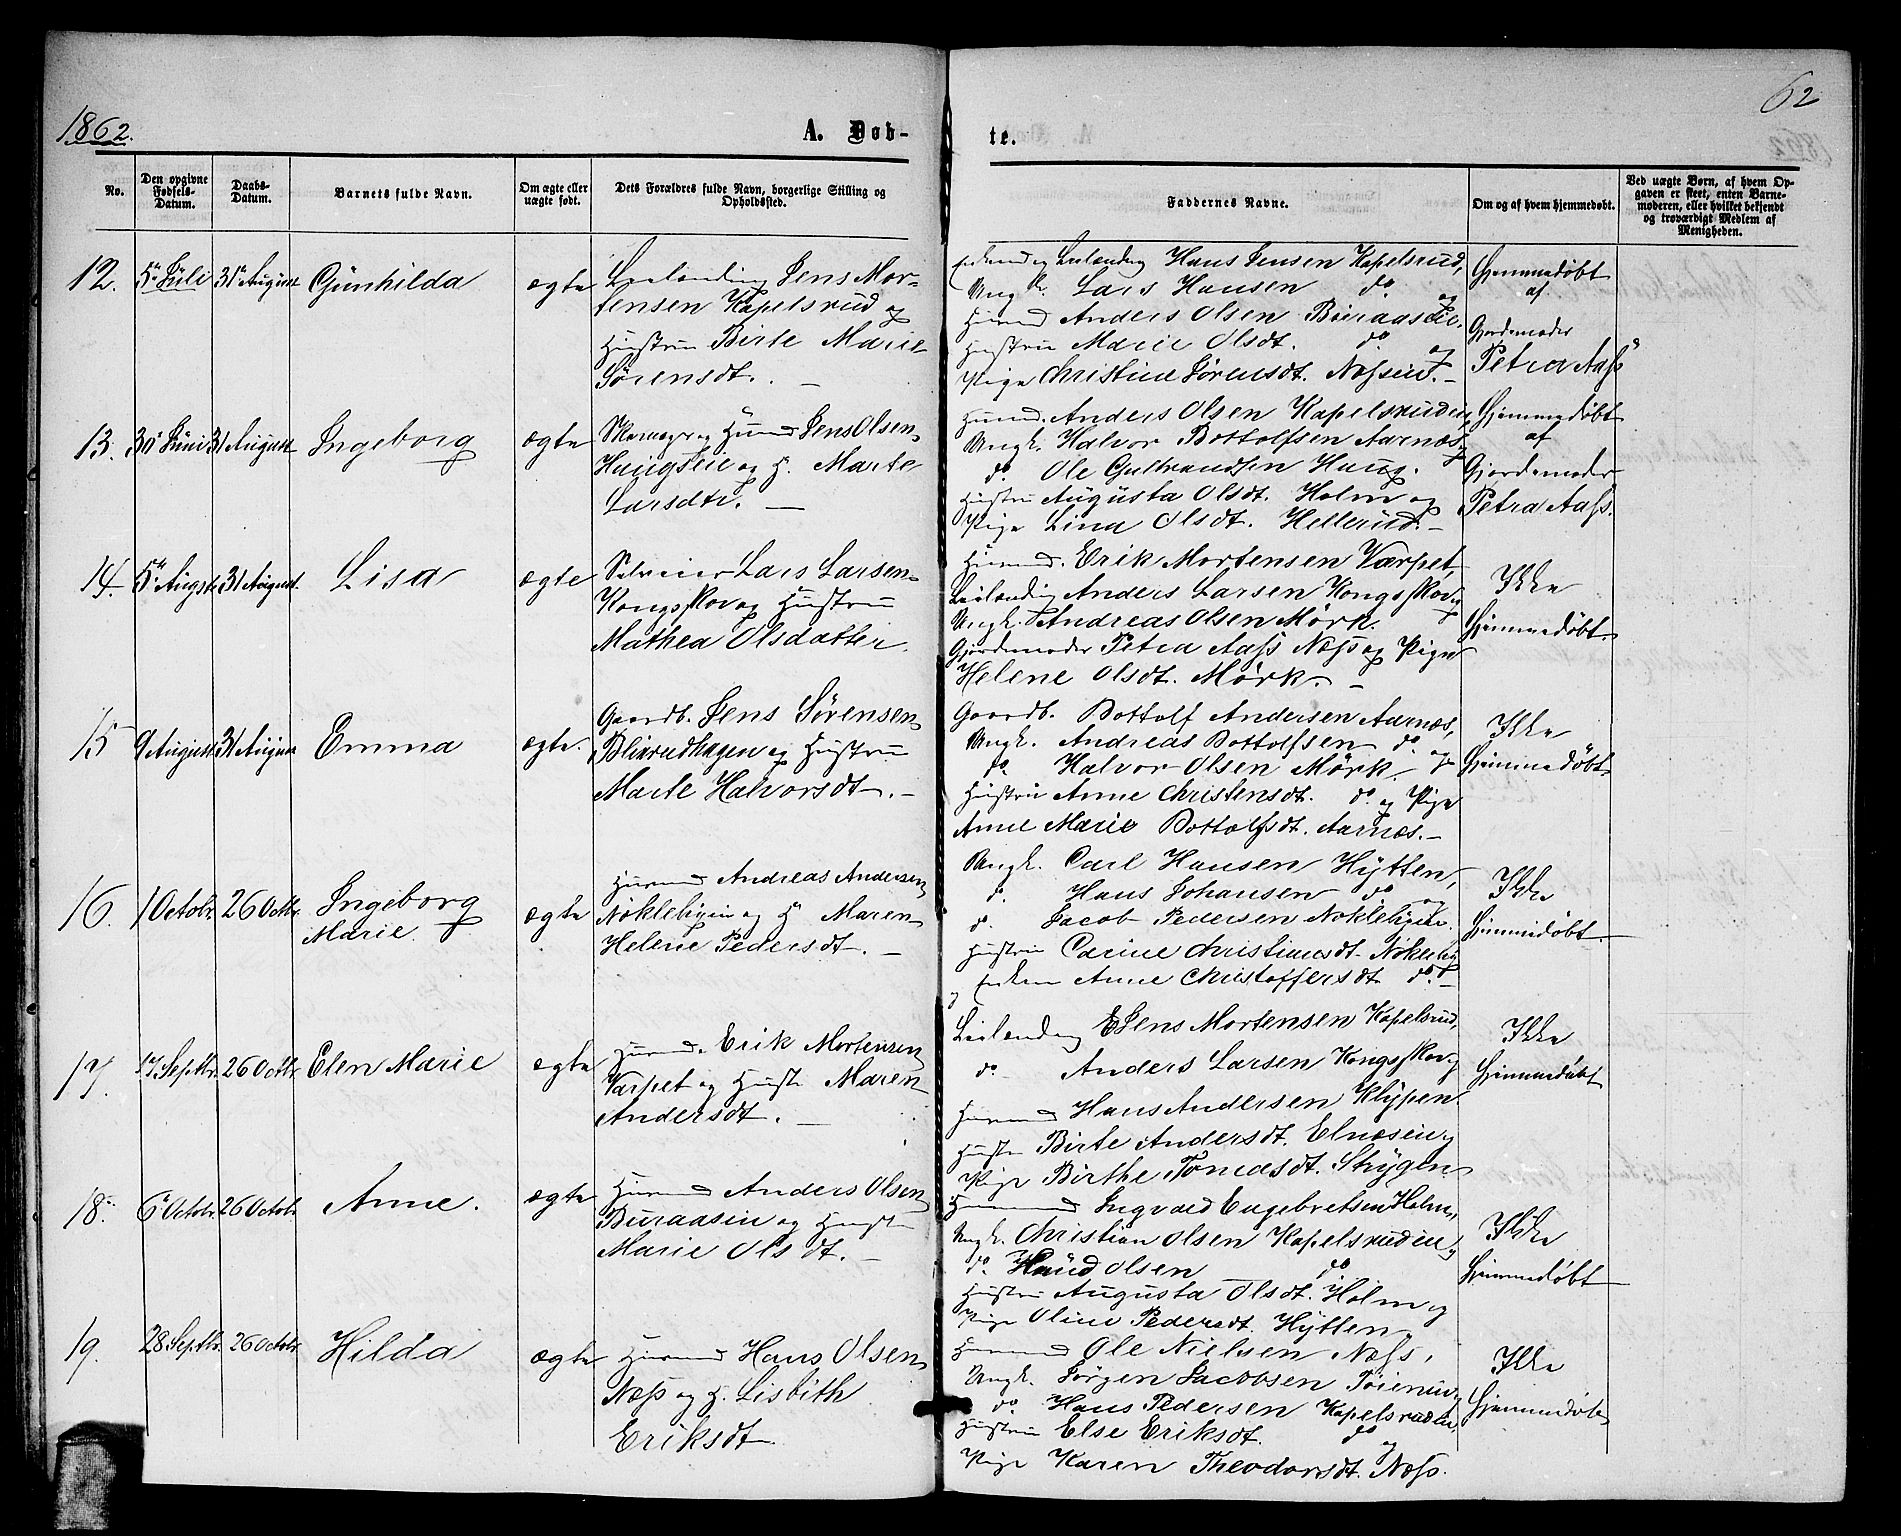 1862.
A. Døb-
te.
62
No.
Den opgivne Fødsels-Datum.
Daabs-Datum.
Barnets fulde Navn.
Om ægte eller uægte født.
Dets Forældres fulde Navn, borgerlige Stilling og Opholdssted.
Faddernes Navne.
Om og af hvem hjemmedøbt.
Ved uægte Børn, af hvem Op-
gaven er skeet, enten Barne-
moderen, eller hvilket bekjendt
og troværdigt Medlem af
Menigheden.
12. 5te Juli 31te August Gunhilda ægte
Leilænding Jens Mor-
tensen Kapelsrud og
Hustru Birte Marie
Sørensdt. —
Leilænding Hans Jensen Kapelsrud,
Ungk. Lars Hansen do. og
Huusmd Anders Olsen Buraaseie,
Hustru Marie Olsdt. do. og
Pige Christine Sørensdt. Næsseie. —
Hjemmedøbt
af
Gjordemoder
Petra Aass
13. 30 Juni 31 August Ingeborg ægte
Skomager og Huusmd Jens Olsen
Haugseie og H. Marte
Larsdtr. —
Huusmd. Anders Olsen Kapelsrudeie,
Ungk. Halvor Bottolfsen Aarnæs,
do. Ole Gulbrandsen Haug. og
Hustru Augusta Olsdt. Holm og
Pige Lina Olsdt. Hellerud. —
Hjemmedøbt
af
Gjordemoder
Petra Aass.
14 5te Augst. 31 August. Lisa ægte
Selveier Lars Larsen
Kongsskov og Hustru
Mathea Olsdatter.
Huusmd. Erik Mortensen Værpet,
Leilænding Anders Larsen Kongsskov,
Ungk. Andreas Olsen Mörk.
Gjordemoder Petra Aass Næs og Pige
Helene Olsdt. Mörk. —
Ikke
Hjemmedøbt
15 9 August 31 August Emma ægte.
Gaardb. Jens Sørensen
Blixrudhagen og Hustru
Marte Halvorsdt. —
Gaardb. Bottolf Andersen Aarnæs,
Ungk. Andreas Bottolfsen do. og
do. Halvor Olsen Mörk og
Hustru Anne Christensdt. do. og Pige
Anne Marie Bottolfsdt. Aarnæs. —
Ikke
Hjemmedøbt
16. 1 Octobr. 26 Octbr. Ingeborg
Marie. ægte
Huusmd Andreas Andersen
Nøklebyeie og H. Maren
Helene Pedersdt. —
Ungk. Carl Hansen Hytten,
do. Hans Johansen do. og
do. Jacob Pedersen Nøklebyeie.
Hustru Carine Christiansdt. Nøkleby
og Enken Anne Christoffersdt do. —
Ikke
Hjemmedøbt
17. 17 Septbr. 26 Octbr. Elen Marie ægte
Huusmd. Erik Mortensen
Værpet og Hustr. Maren
Andersdt. —
Leilænding Jens Mortensen Kapelsrud,
do. Anders Larsen Kongsskov og
Huusmd Hans Andersen Klypen.
Hustr. Birte Andersdt. Elnæseie og
Pige Birthe Tomasdt. Stryger
Ikke
Hjemmedøbt
18. 6te Octobr. 26 Octobr. Anne. ægte
Huusmd Anders Olsen
Buraaseie og Hustr.
Marie Olsdt. —
Huusmd Ingvald Engebretsen Holm,
Ungk. Christian Olsen Kapelsrudeie og
do. Knud Olsen do
Hustru Augusta Olsdt. Holm og
Pige Oline Pedersdt. Hytten.
Ikke
Hjemmedøbt
19. 28 Septbr. 26 Octobr. Hilda ægte
Huusmd Hans Olsen
Næss og H. Lisbith
Eriksdt.
Huusmd Ole Nielsen Næss,
Ungk. Jørgen Jacobsen Tøieneie,
do. Hans Pedersen Kapelsrudeie,
Hustru Else Eriksdt. do og
Pige Karen Theodorsdt. Næss.
Ikke
Hjemmedøbt